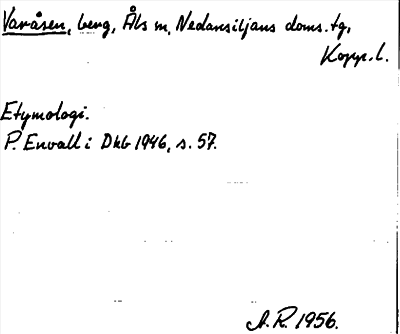 Varåsen, berg, Åls sn, Nedansiljans doms.tg,
Kopp.l.
Etymologi.
P. Envall i DhbG 1946, s. 57.
A.R. 1956.